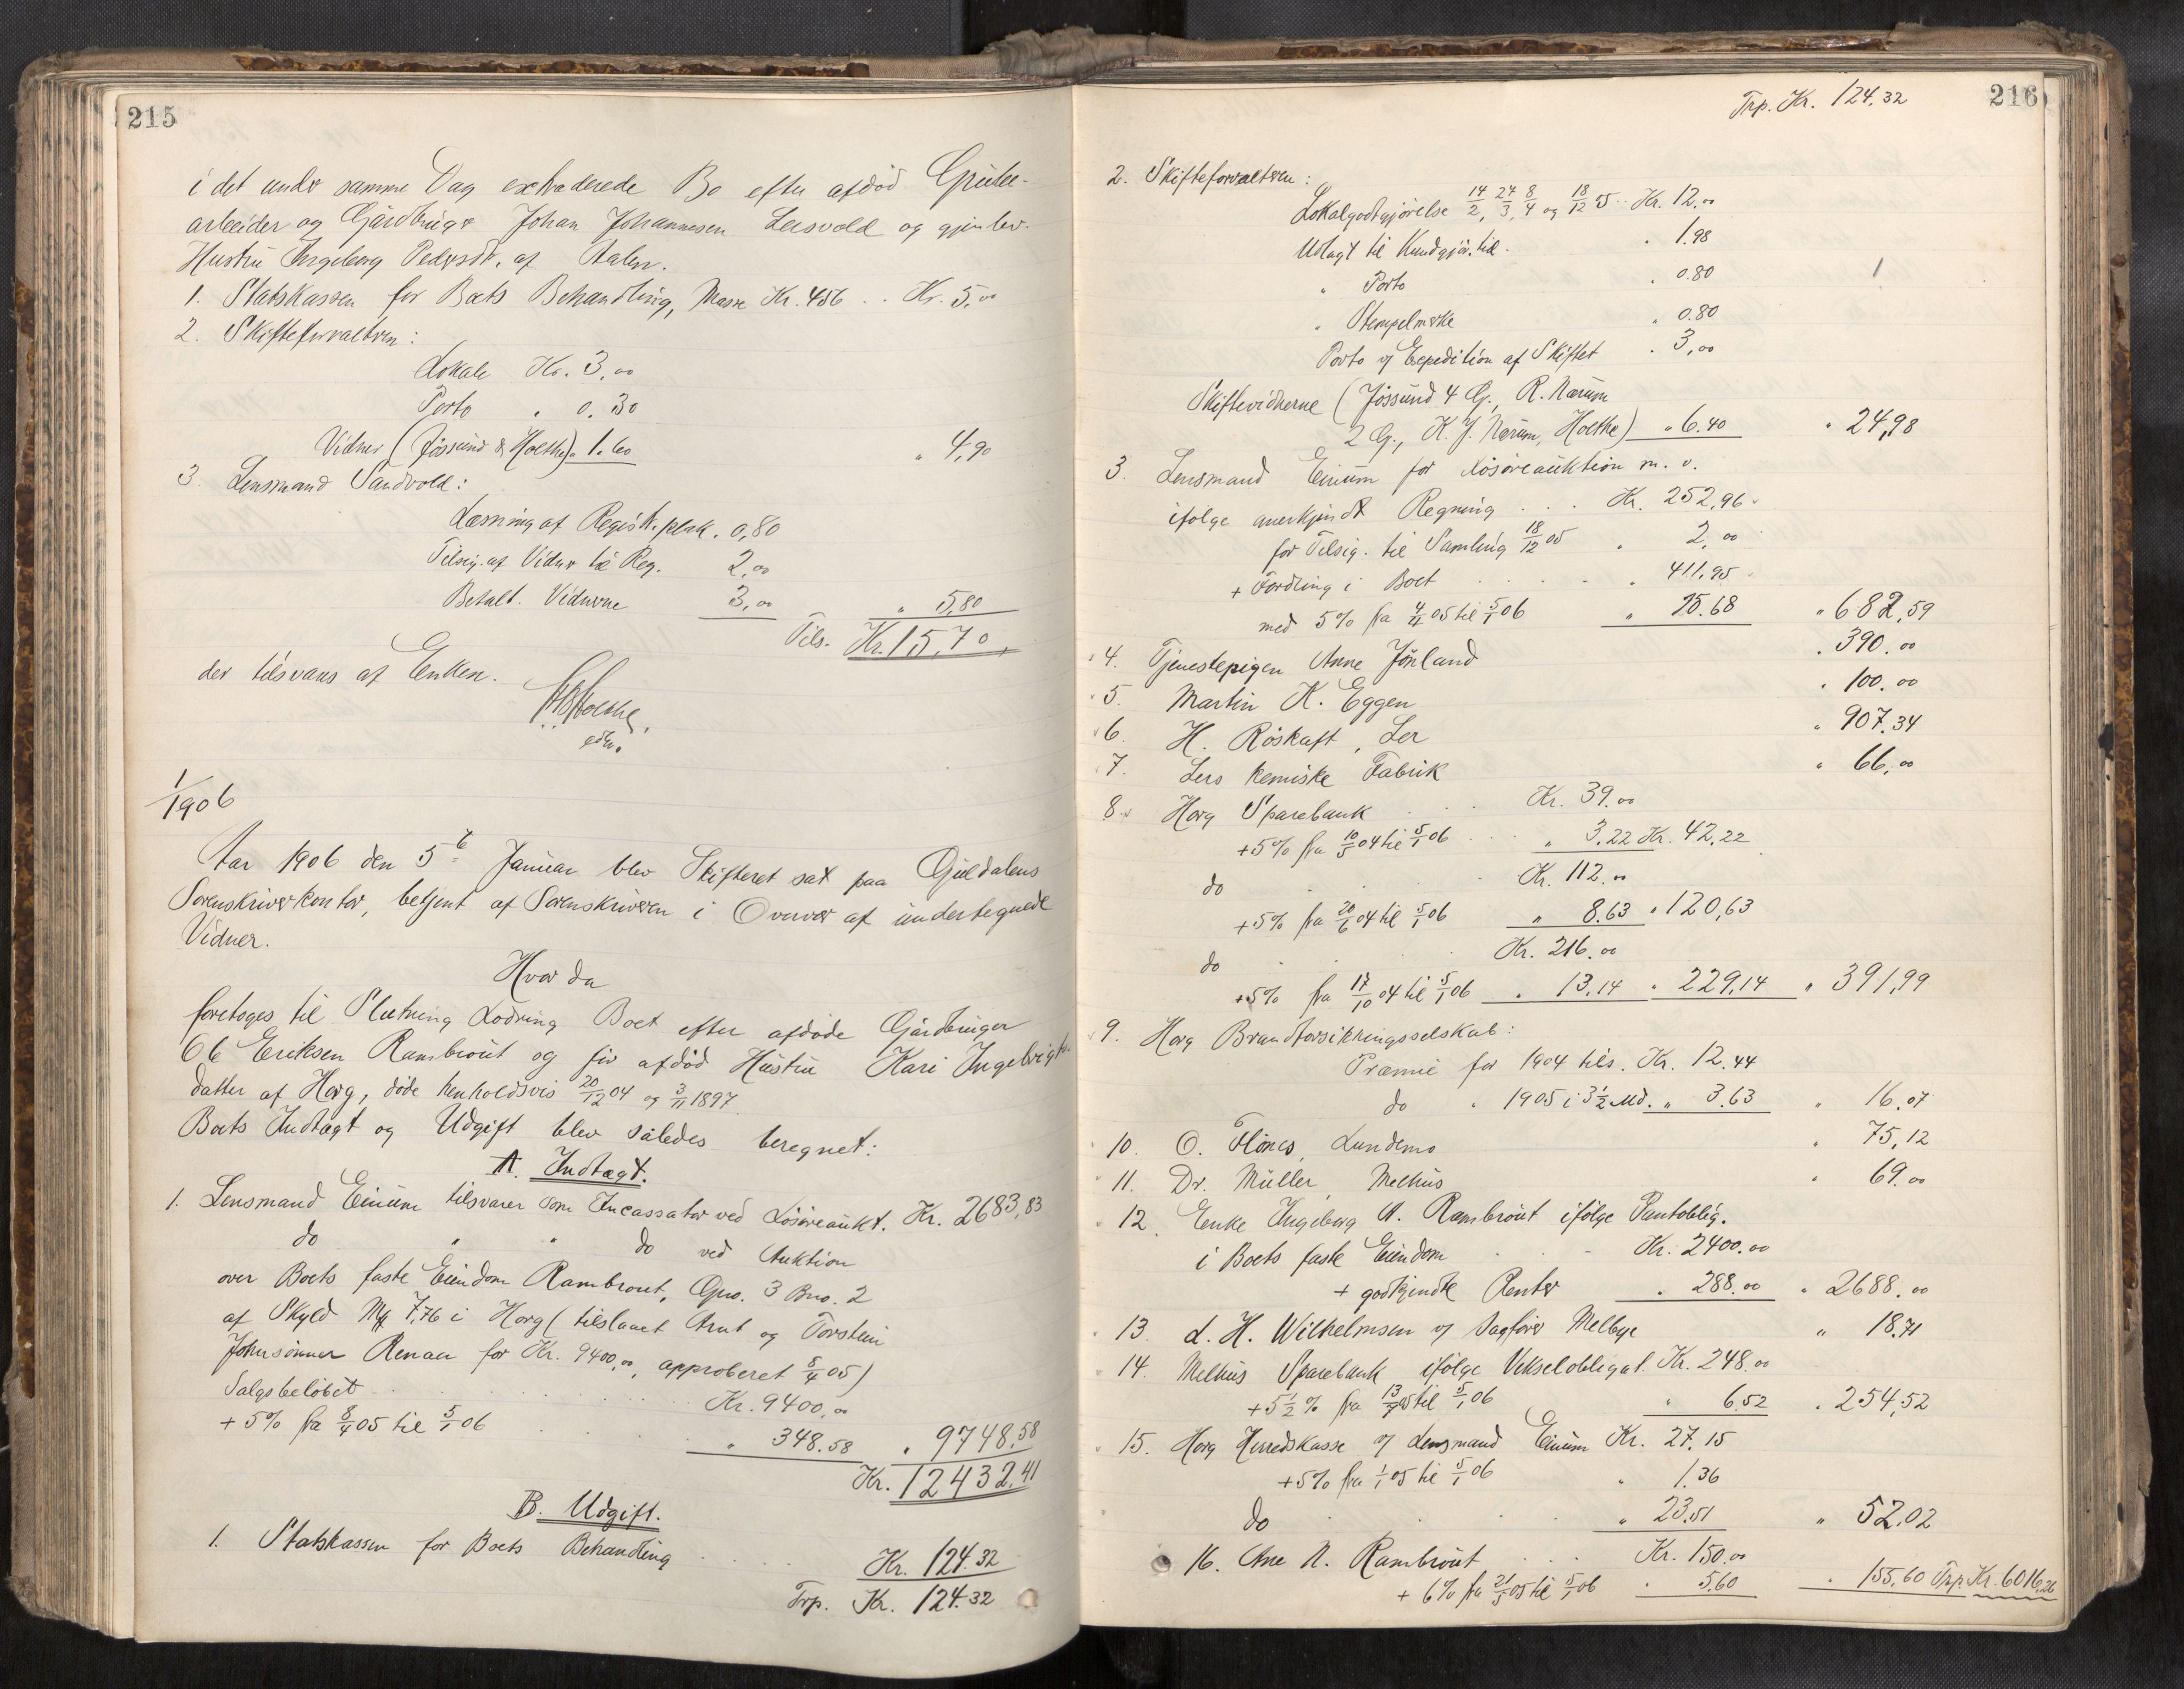 215
i det under samme Dag extraderede Bo efter afdød Grube-
arbeider og Gårdbruger Johan Johannesen Lersvold og gjenlev.
Hustru Ingeborg Pedersdr. af Aalen.
1. Statskassen for Boets Behandling, Masse Kr. 456 .. Kr. 5.00
2. Skifteforvalteren:
Lokale Kr. 3.00
Porto " 0.30
Vidner (Jøssund & Holthe) " 1.60 " 4,90
3. Lensmand Sandvold:
Læsning af Registr.plak. 0,80
Tilsig. af Vidner til Reg. 2,00
Betalt. Vidnerne 3,00 " 5,80
Tils. Kr. 15,70
der tilsvares af Enken.
1/1906
Aar 1906 den 5te Januar blev Skifteret sat paa Guldalens
Sorenskriverkontor, betjent af Sorenskriveren i Overvær af undertegnede
Vidner.
Hvor da
foretoges til Slutning Lodning Boet efter afdøde Gårdbruger
Ole Eriksen Rambrøut og før afdød Hustru Kari Ingebrigts-
datter af Horg, døde henholdsvis 20/12 04 og 3/11 1897
Boets Indtægt og Udgift blev således beregnet:
A. Indtægt.
1. Lensmand Einum tilsvarer som Incassator ved Løsøreaukt. Kr. 2683,83
do " " do ved Auktion
over Boets faste Eiendom Rambrout, Gno. 3 Bno. 2
af Skyld Mk 7,76 i Horg (tilslaaet Arnt og Torstein
Johnsønner Renaa for Kr. 9400,00, approberet 5/4 05)
Salgsbeløbet Kr. 9400,00
+ 5% fra 8/4 05 til 5/1 06 " 348.58 " 9748.58
Kr. 12432.41
B. Udgift.
1. Statskassen for Boets Behandling Kr. 124.32
Trp. Kr. 124.32
216
Trp. Kr. 124.32
2. Skifteforvalteren:
Lokalgodtgjørelse 14/2, 24/3, 8/4 og 18/12 05 .. Kr. 12.00
Udlagt til Kundgjør. tid. " 1.98
" Porto " 0.80
" Stempelmerke " 0.80
Porto og Expedition af Skiftet " 3,00
Skiftevidnerne (Jøssund 4 G., R. Nærum
2 G., K. J. Nærum, Holthe) " 6.40 " 24,98
3. Lensmand Einum for Løsøreauktion m. v.
ifølge anerkjendt Regning ... Kr. 252,96
for Tilsig. til Samling 18/12 05 " 2,00
+ Fordring i Boet " 411,95
med 5% fra 4/4 05 til 5/1 06 " 15.68 " 682,59
4. Tjenestepigen Anne Jørland " 390.00
5. Martin K. Eggen " 100.00
6. H. Røskaft, Ler " 907.34
7. Lers kemiske Fabrik " 66,00
8. Horg Sparebank Kr. 39.00
+5% fra 10/5 04 til 5/1 06 " 3.22 Kr. 42,22
do Kr. 112.00
+5% fra 20/6 04 til 5/1 06 " 8.63 " 120,63
do Kr. 216.00
+5% fra 17/10 04 til 5/1 06 " 13,14 " 229,14 " 391,99
9. Horg Brandforsikringsselskab:
Præmie for 1904 tils. Kr. 12.44
do " 1905 i 3½ Md. " 3.63 " 16.07
10. O. Flønes, Lundemo " 75,12
11. Dr. Müller, Melhus " 69.00
12. Enke Ingeborg A. Rambrøut ifølge Pantoblig.
i Boets faste Eiendom Kr. 2400.00
+ godkjendte Renter " 288.00 " 2688.00
13. L. H. Wilhelmsen v/ Sagfører Melbye " 18,71
14. Melhus Sparebank ifølge Vekselobligat. Kr. 248.00
+5½% fra 13/7 05 til 5/1 06 " 6.52 " 254,52
15. Horg Herredskasse v/ Lensmand Einum Kr. 27.15
+5% fra 1/1 05 til 5/1 06 " 1.36
do " 23.51 " 52,02
16. Ane N. Rambrøut Kr. 150.00
+ 6% fra 21/5 05 til 5/1 06 " 5.60 " 155,60 Trp. Kr. 6016,26